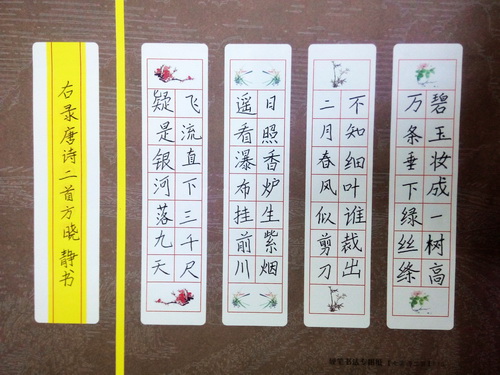 碧玉妆成一树高
万条垂下绿丝绦
不知细叶谁裁出
二月春风似剪刀
日照香炉生紫烟
遥看瀑布挂前川
飞流直下三千尺
疑是银河落九天
右录唐诗二首方晓静书
硬笔书法专用纸